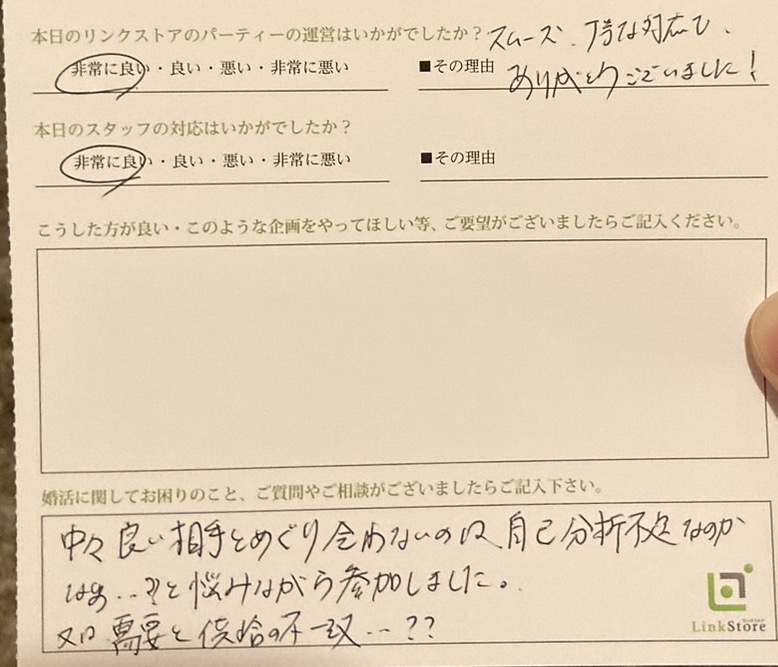 本日のリンクストアのパーティーの運営はいかがでしたか？
スムーズ、丁寧な対応で、
非常に良い・良い・悪い・非常に悪い
■その理由
ありがとうございました！
本日のスタッフの対応はいかがでしたか？
非常に良い・良い・悪い・非常に悪い
■その理由
こうした方が良い・このような企画をやってほしい等、ご要望がございましたらご記入ください。
婚活に関してお困りのこと、ご質問やご相談がございましたらご記入下さい。
中々良い相手とめぐり会わないのは、自己分析不足なのか
なぁ...?と悩みながら参加しました。
又は需要と供給の不一致...??
LinkStore